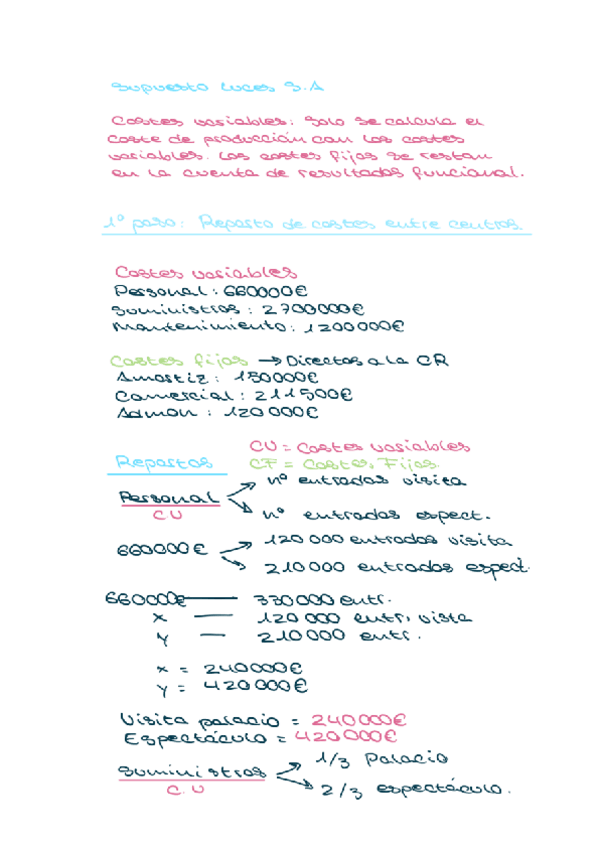 Supuesto Luces S.A
Costes variables: Solo se calcula el
coste de producción con los costes
variables. Los costes fijos se restan
en la cuenta de resultados funcional.
1º paso: Reparto de costes entre centros.
Costes variables
Personal: 660000€
Suministros: 2700000€
Mantenimiento: 1200000€
Costes fijos → Directos a la CR
Amortiz: 150000€
Comercial: 211500€
Admon: 120000€
CV = Costes variables
Repartos CF = Costes Fijos.
nº entradas visita
Personal
CV nº entradas espect.
660000€ 120000 entradas visita
210000 entradas espect.
660000€ — 330000 entr.
x — 120000 entr. visita
y — 210000 entr.
x = 240000€
y = 420000€
Visita palacio = 240000€
Espectáculo = 420000€
1/3 Palacio
Suministros
C.V 2/3 espectáculo.